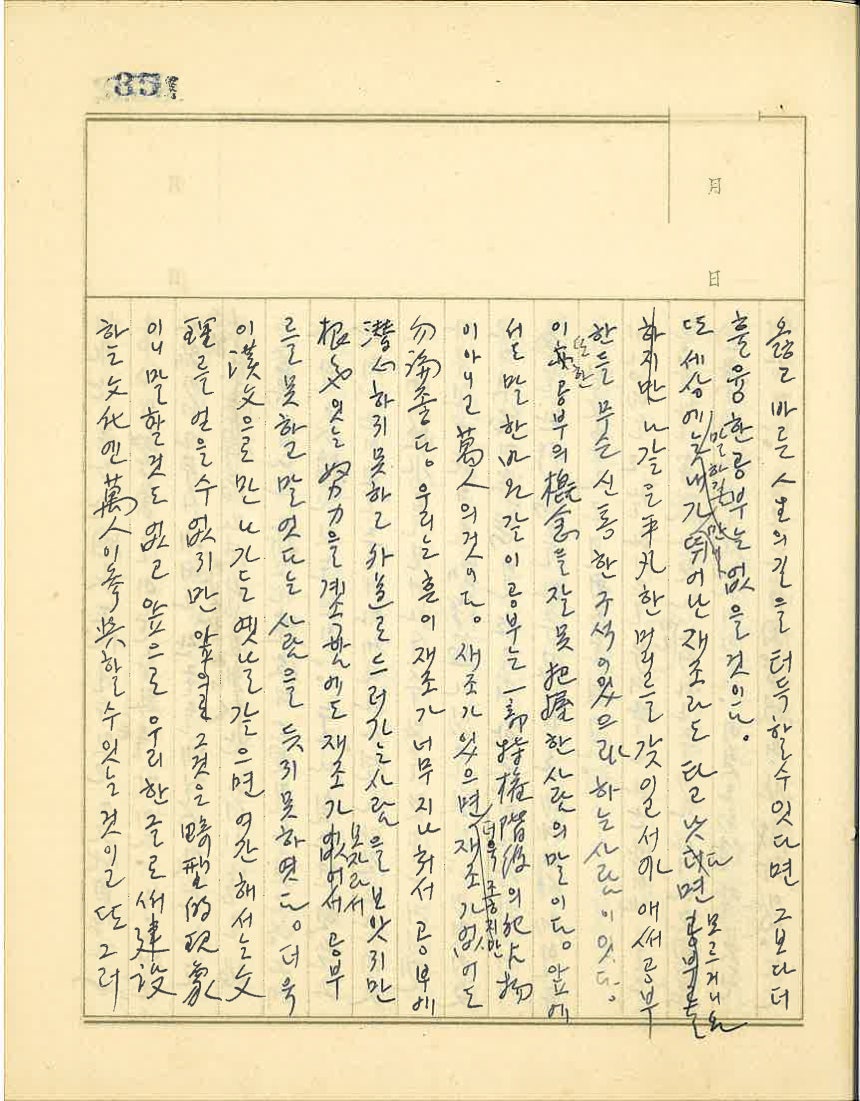 351
月
日
옳고 바른 人生의 길을 터득할 수 잇다면 그보다 더
훌융한 공부는 없을 것이다.
또 세상에는 내가 뛰어난 재조라도 타고 낫다면 공부를 모르거니와
말하길 만일
하지만 나 같은 平凡한 머리를 갖인 서야 애써 공부
한들 무슨 신통한 구석이 있으랴 하는 사람이 잇다.
또한
이 亦 공부의 槪念을 잘못 把握한 사람의 말이다. 앞에
서도 말한 바와 같이 공부는 一部 特權階級의 犯占物
이 아니고 萬人의 것이다. 재조가 있으면 재조가 없어도
더욱 조흐지만
勿論 좋다. 우리는 흔이 재조가 너무 지나쳐서 공부에
潛心하지 못하고 外道로 드러가는 사람을 보앗지만
根氣 잇는 努力을 계속함에도 재조가 없어서 공부
모자라서
를 못하고 말엇다는 사람을 듯지 못하엿다. 더욱
이 漢文으로만 나가든 옛날 같으면 여간해서는 文
理를 얻을 수 없지만 앞으로 그것은 畸型的 現象
이니 말할 것도 없고 앞으로 우리 한글로써 建設
하는 文化엔 萬人이 參與할 수 잇는 것이고 또 그러